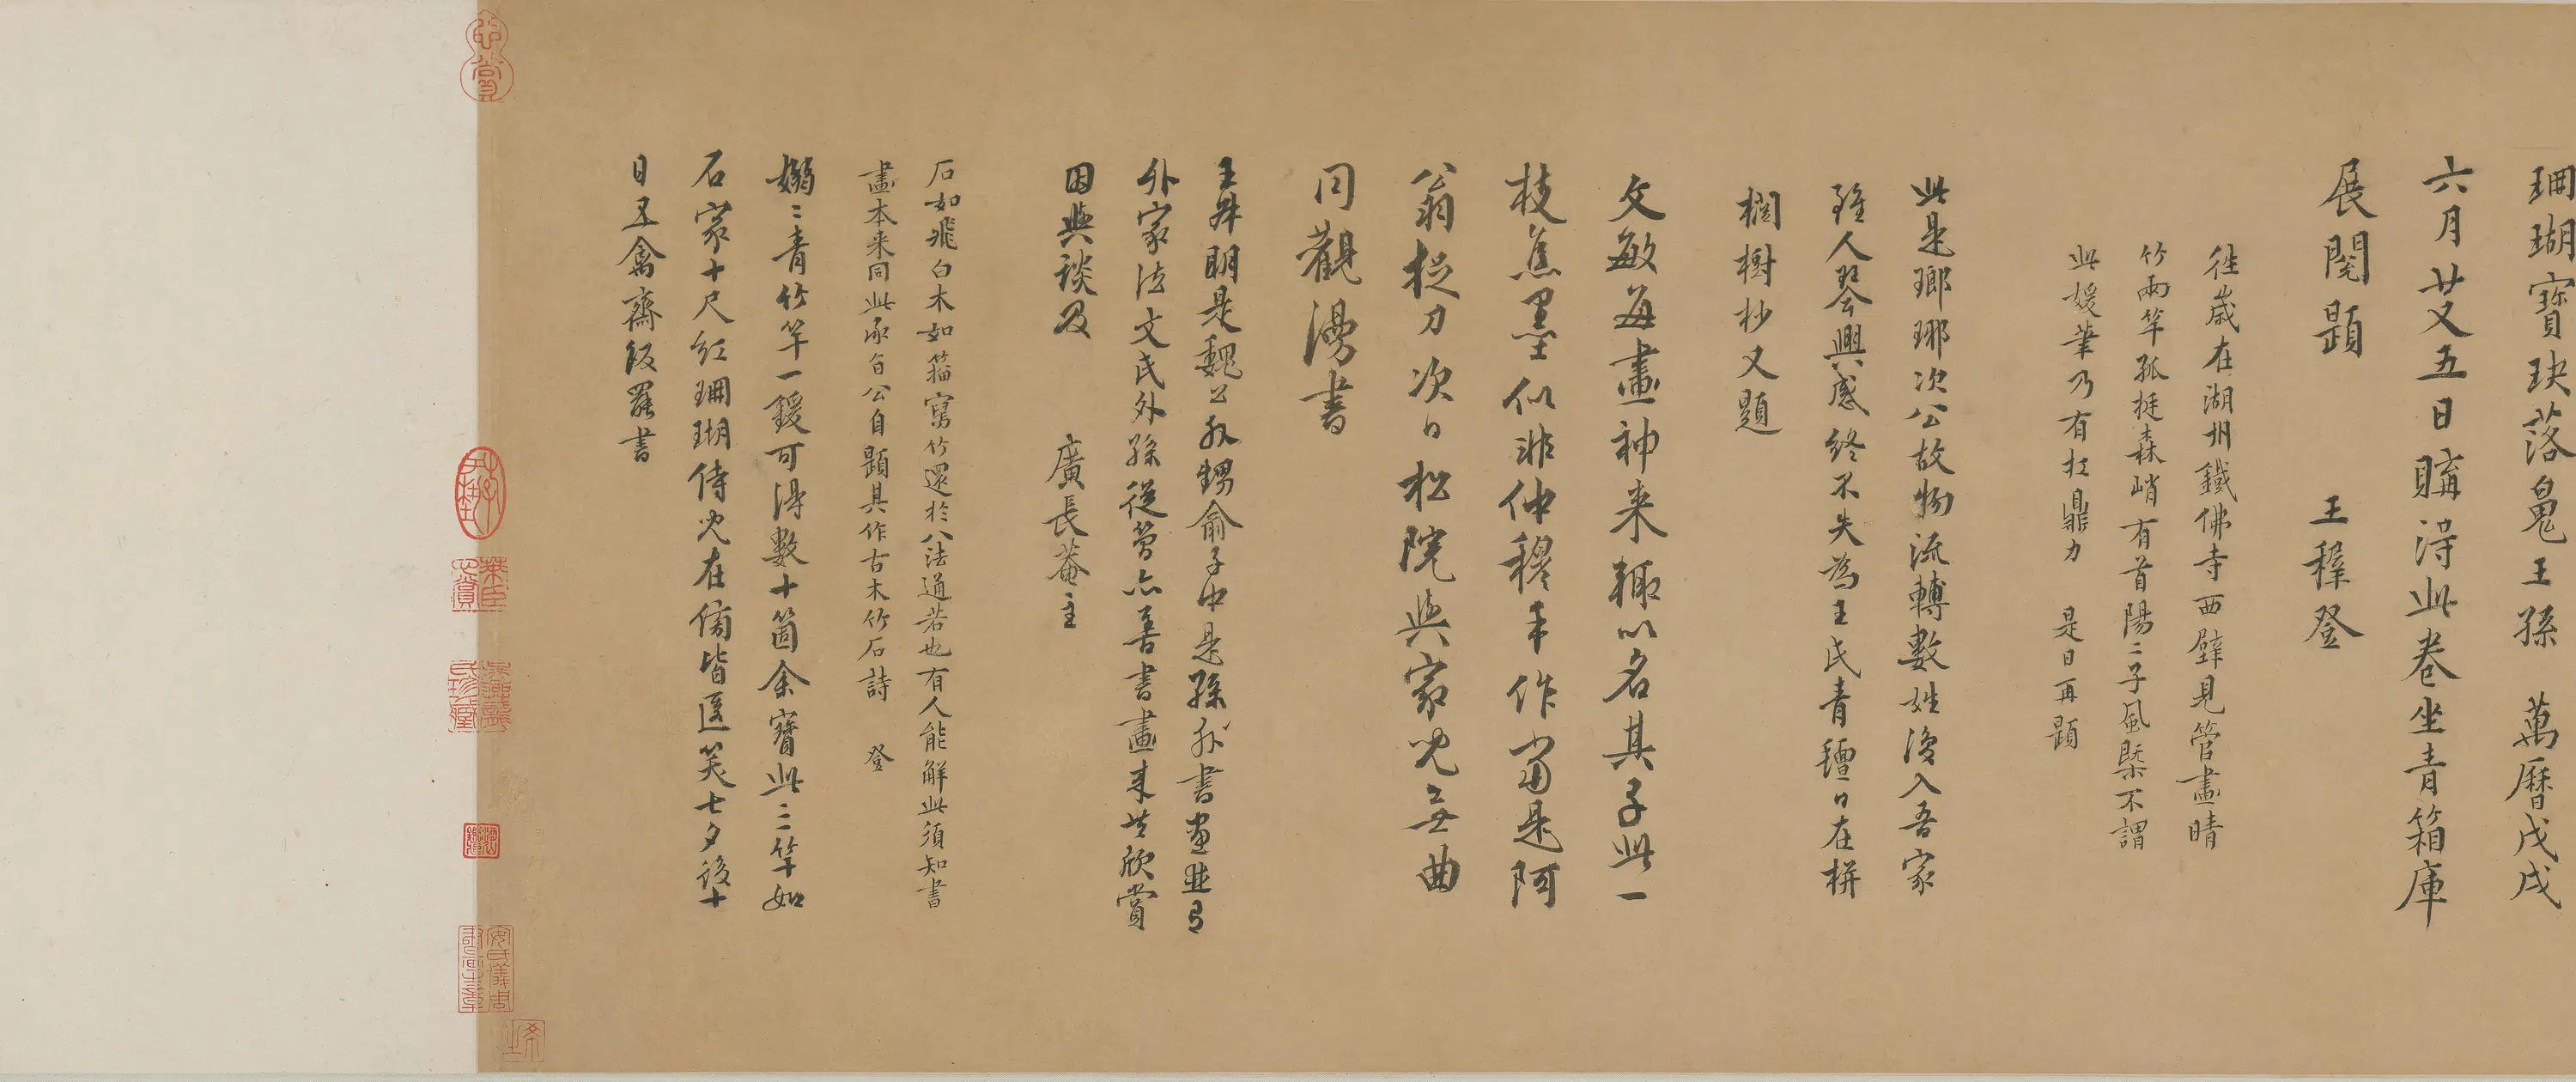 珊瑚寶玦落鳧王孫 萬曆戊戌
六月廿又五日購得此卷坐青箱庫
展閱題 王穉登
往歲在湖州鐵佛寺西壁見管畫晴
竹兩竿孤挺森峭有首陽二子風槩不謂
此媛筆乃有扛鼎力 是日再題
此是瑯琊次公故物流轉數姓復入吾家
雖人琴興感終不失為王氏青氊日在栟
櫚樹杪又題
文敏每畫神来輙以名其子此一
枝焦墨似非仲穆手作當是阿
翁捉刀次日松院與家兒無曲
同觀漫書
王叔明是魏公外甥俞子中是孫外書畫並有
外家法文氏外孫從簡亦善書畫来共欣賞
因與談及 廣長菴主
石如飛白木如籀寫竹還於八法通若也有人能解此須知書
畫本来同此承旨公自題其作古木竹石詩 登
嫋〻青竹竿一鍰可得數十箇余寶此二竿如
石家十尺紅珊瑚侍兒在傍皆匿笑七夕後十
日五禽齋飯罷書
心賞